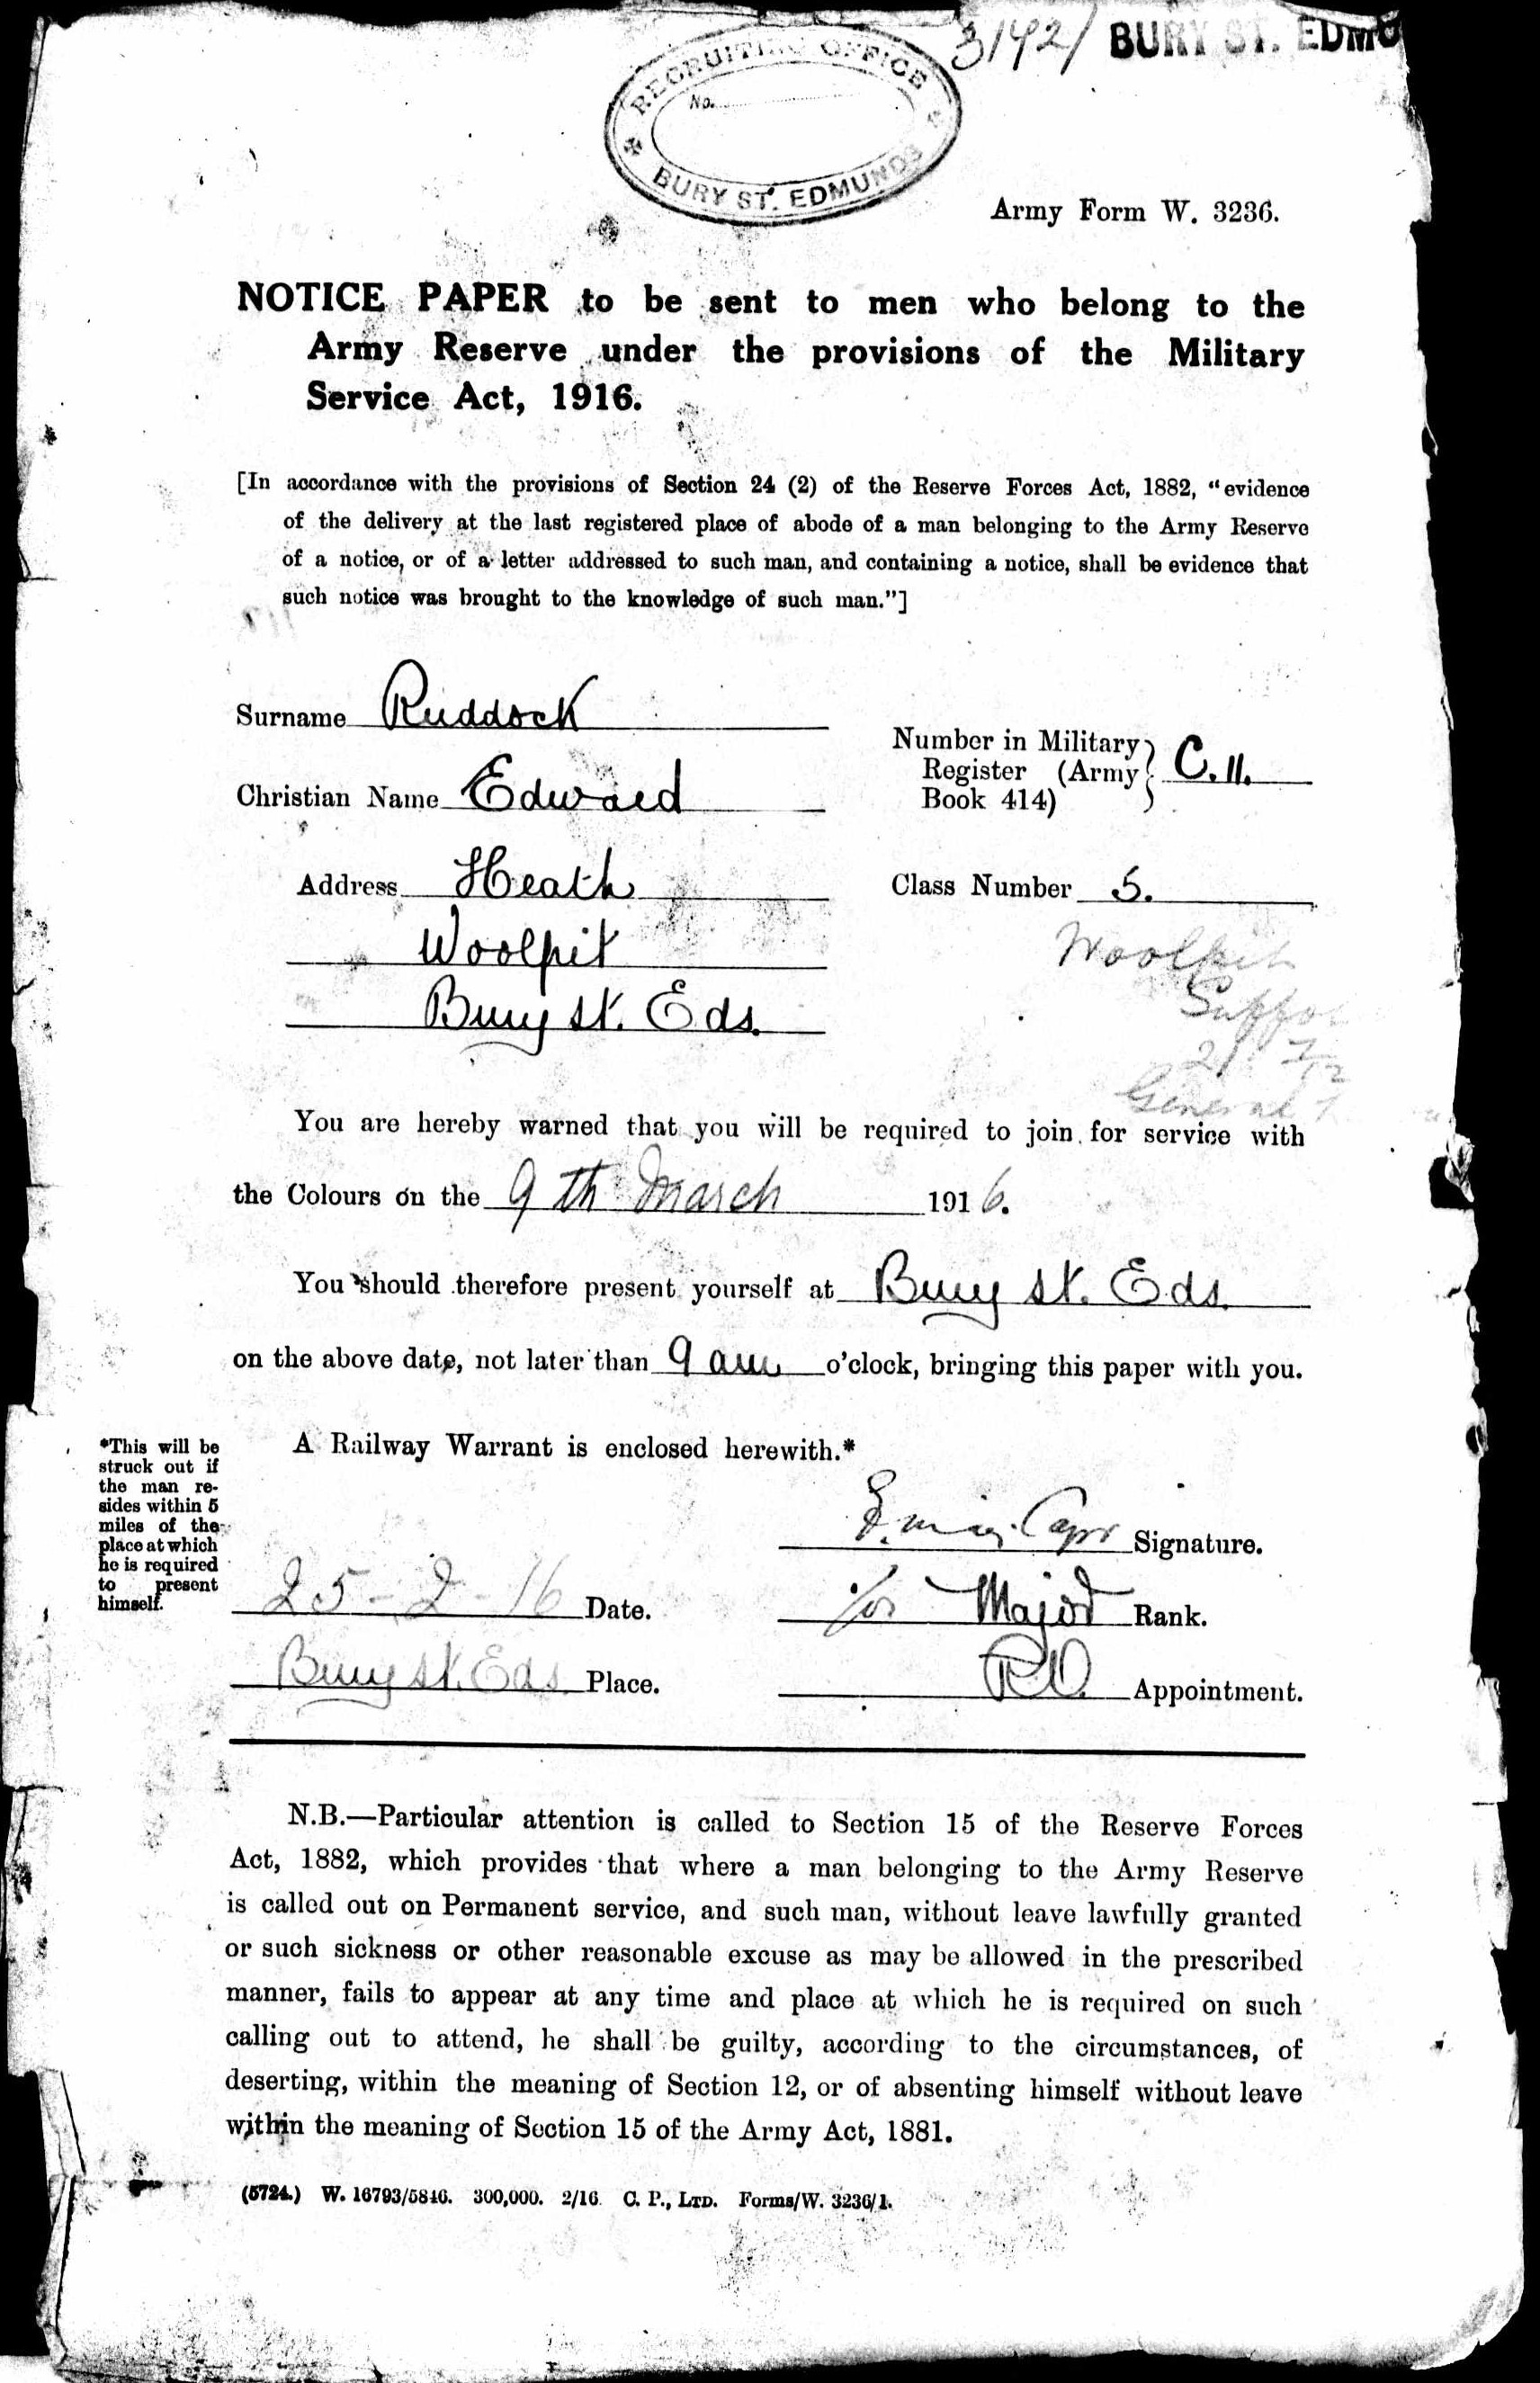 3192/ BURY ST. EDMU
RECRUITING OFFICE
No.
BURY ST. EDMUNDS
Army Form W. 3236.
NOTICE PAPER to be sent to men who belong to the
Army Reserve under the provisions of the Military
Service Act, 1916.
[In accordance with the provisions of Section 24 (2) of the Reserve Forces Act, 1882, "evidence
of the delivery at the last registered place of abode of a man belonging to the Army Reserve
of a notice, or of a letter addressed to such man, and containing a notice, shall be evidence that
such notice was brought to the knowledge of such man."]
Surname Ruddock
Christian Name Edward
Number in Military
Register (Army
Book 414) } C. 11.
Address Heath
Woolpit
Bury St. Eds.
Class Number 5.
Woolpit
Suffo
21
General
You are hereby warned that you will be required to join for service with
the Colours on the 9th March 1916.
You should therefore present yourself at Bury St. Eds.
on the above date, not later than 9 am o'clock, bringing this paper with you.
A Railway Warrant is enclosed herewith.*
*This will be
struck out if
the man re-
sides within 5
miles of the
place at which
he is required
to present
himself.
Capt Signature.
25-2-16 Date.
for Major Rank.
Bury St. Eds Place.
R.O. Appointment.
N.B.—Particular attention is called to Section 15 of the Reserve Forces
Act, 1882, which provides that where a man belonging to the Army Reserve
is called out on Permanent service, and such man, without leave lawfully granted
or such sickness or other reasonable excuse as may be allowed in the prescribed
manner, fails to appear at any time and place at which he is required on such
calling out to attend, he shall be guilty, according to the circumstances, of
deserting, within the meaning of Section 12, or of absenting himself without leave
within the meaning of Section 15 of the Army Act, 1881.
(5724.) W. 16793/5846. 300,000. 2/16. C. P., LTD. Forms/W. 3236/1.